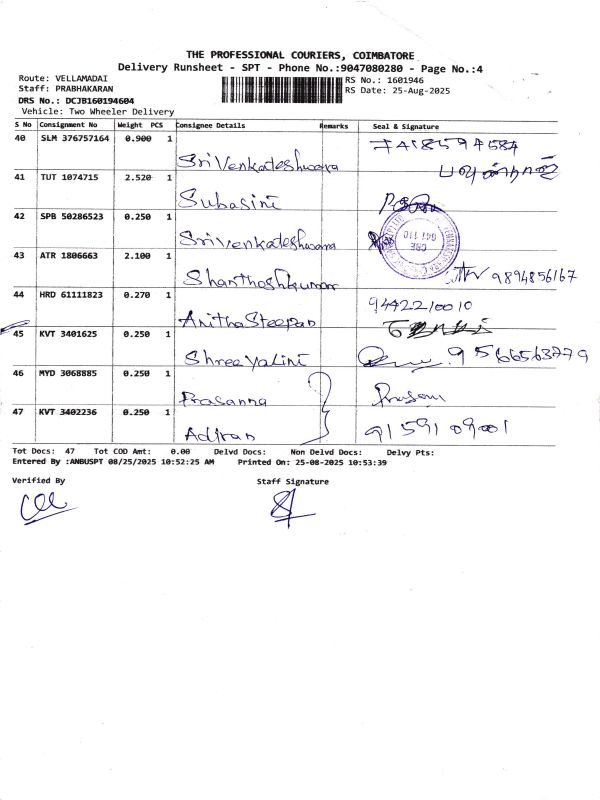 THE PROFESSIONAL COURIERS, COIMBATORE
Delivery Runsheet - SPT - Phone No.:9047080280 - Page No.:4
Route: VELLAMADAI
RS No.: 1601946
Staff: PRABHAKARAN
RS Date: 25-Aug-2025
DRS No.: DCJB160194604
Vehicle: Two Wheeler Delivery
S No Consignment No Weight PCS Consignee Details Remarks Seal & Signature
40 SLM 376757164 0.900 1
Sri Venkateshwara
41 TUT 1074715 2.520 1
Subasini
42 SPB 50286523 0.250 1
Sri Venkateshwara
CBE
641 110
43 ATR 1806663 2.100 1
Shanthoshkumar 9894856167
44 HRD 61111823 0.270 1 9442210010
Anitha Steepan
45 KVT 3401625 0.250 1
Shree Yalini 9566563779
46 MYD 3068885 0.250 1
Prasanna
47 KVT 3402236 0.250 1
Adiran 9159109001
Tot Docs: 47 Tot COD Amt: 0.00 Delvd Docs: Non Delvd Docs: Delvy Pts:
Entered By :ANBUSPT 08/25/2025 10:52:25 AM Printed On: 25-08-2025 10:53:39
Verified By Staff Signature